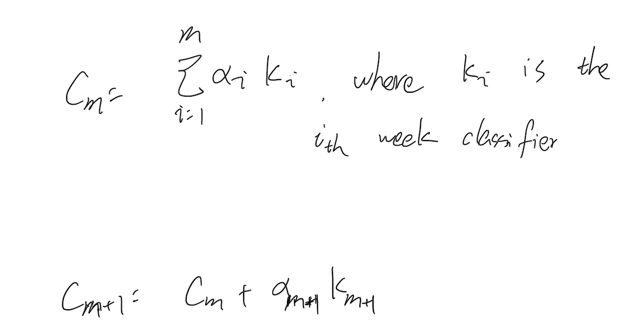 C_m = \sum_{i=1}^{m} α_i k_i , where k_i is the
i_th week classifier
C_{m+1} = C_m + α_{m+1} k_{m+1}